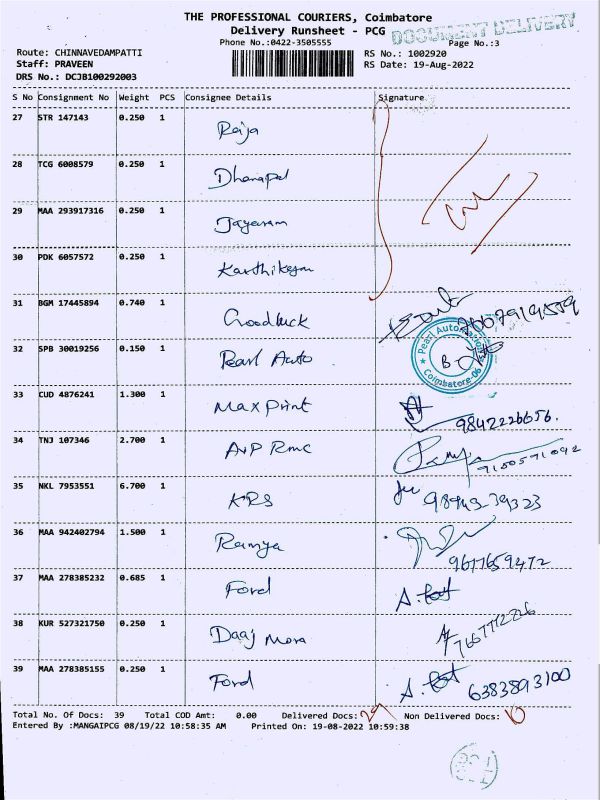 THE PROFESSIONAL COURIERS, Coimbatore
Delivery Runsheet - PCG
DOCUMENT DELIVERY
Phone No.:0422-3505555
Page No.:3
Route: CHINNAVEDAMPATTI
RS No.: 1002920
Staff: PRAVEEN
RS Date: 19-Aug-2022
DRS No.: DCJB100292003
S No Consignment No Weight PCS Consignee Details Signature
27 STR 147143 0.250 1 Raja
28 TCG 6008579 0.250 1 Dhanapal
29 MAA 293917316 0.250 1 Jayaram
30 PDK 6057572 0.250 1 Karthikeyan
31 BGM 17445894 0.740 1 Goodluck
32 SPB 30019256 0.150 1 Pearl Auto
Pearl Automation
Coimbatore-06
33 CUD 4876241 1.300 1 Max Print 9842226656.
34 TNJ 107346 2.700 1 AVP Rmc 9150591092
35 NKL 7953551 6.700 1 KRS
36 MAA 942402794 1.500 1 Ramya 9677659472
37 MAA 278385232 0.685 1 Ford
38 KUR 527321750 0.250 1 Daaj Mora
39 MAA 278385155 0.250 1 Ford 6383893100
Total No. Of Docs: 39 Total COD Amt: 0.00 Delivered Docs: 29 Non Delivered Docs: 10
Entered By :MANGAIPCG 08/19/22 10:58:35 AM Printed On: 19-08-2022 10:59:38